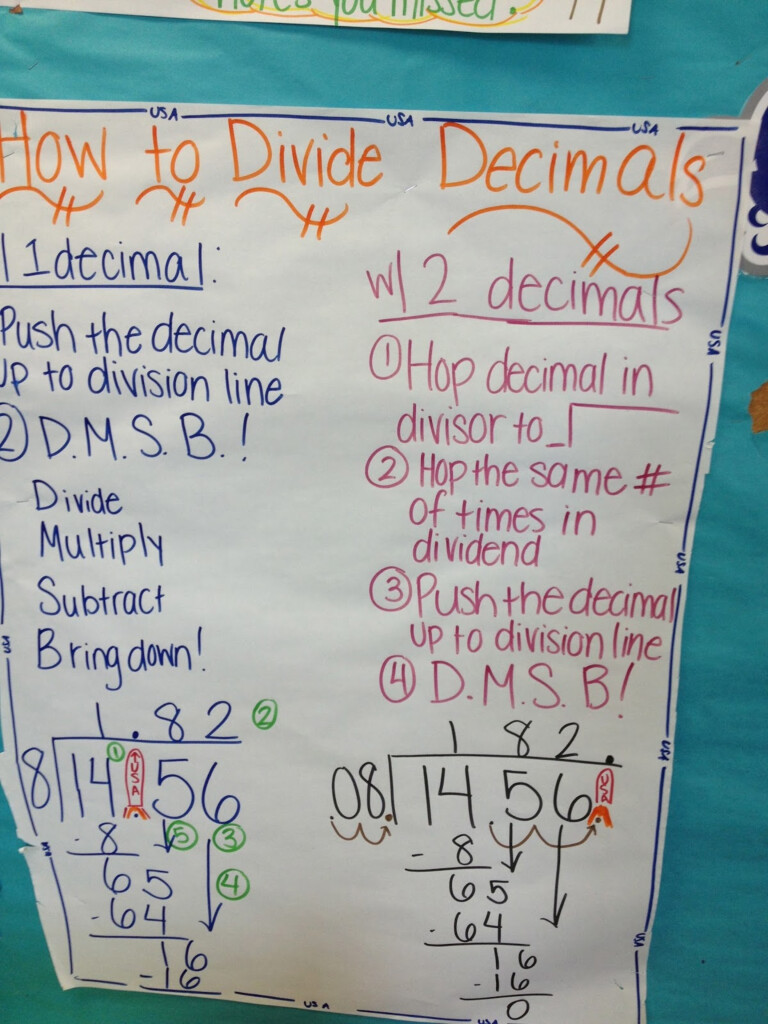 notes you missed.
How to Divide Decimals
USA USA USA
1 decimal:
Push the decimal
up to division line
② D.M.S.B.!
Divide
Multiply
Subtract
Bring down!
1.82 ②
8 14 ① USA 56
- 8 ⑤ ③
65 ④
- 64
16
- 16
w/ 2 decimals
① Hop decimal in
divisor to
② Hop the same #
of times in
dividend
③ Push the decimal
up to division line
④ D.M.S.B!
1 82.
08. 14 56
- 8
65
- 64
16
- 16
0
USA
USA
USA
USA
USA
USA
USA
USA